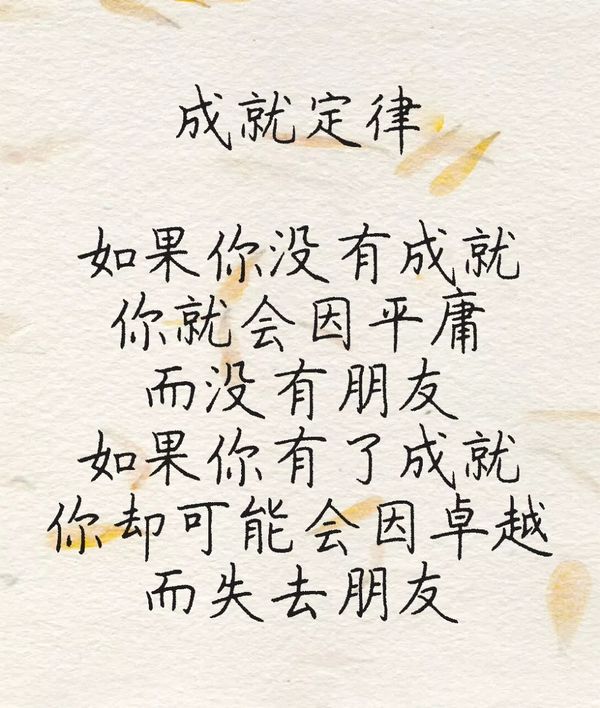 成就定律
如果你没有成就
你就会因平庸
而没有朋友
如果你有了成就
你却可能会因卓越
而失去朋友